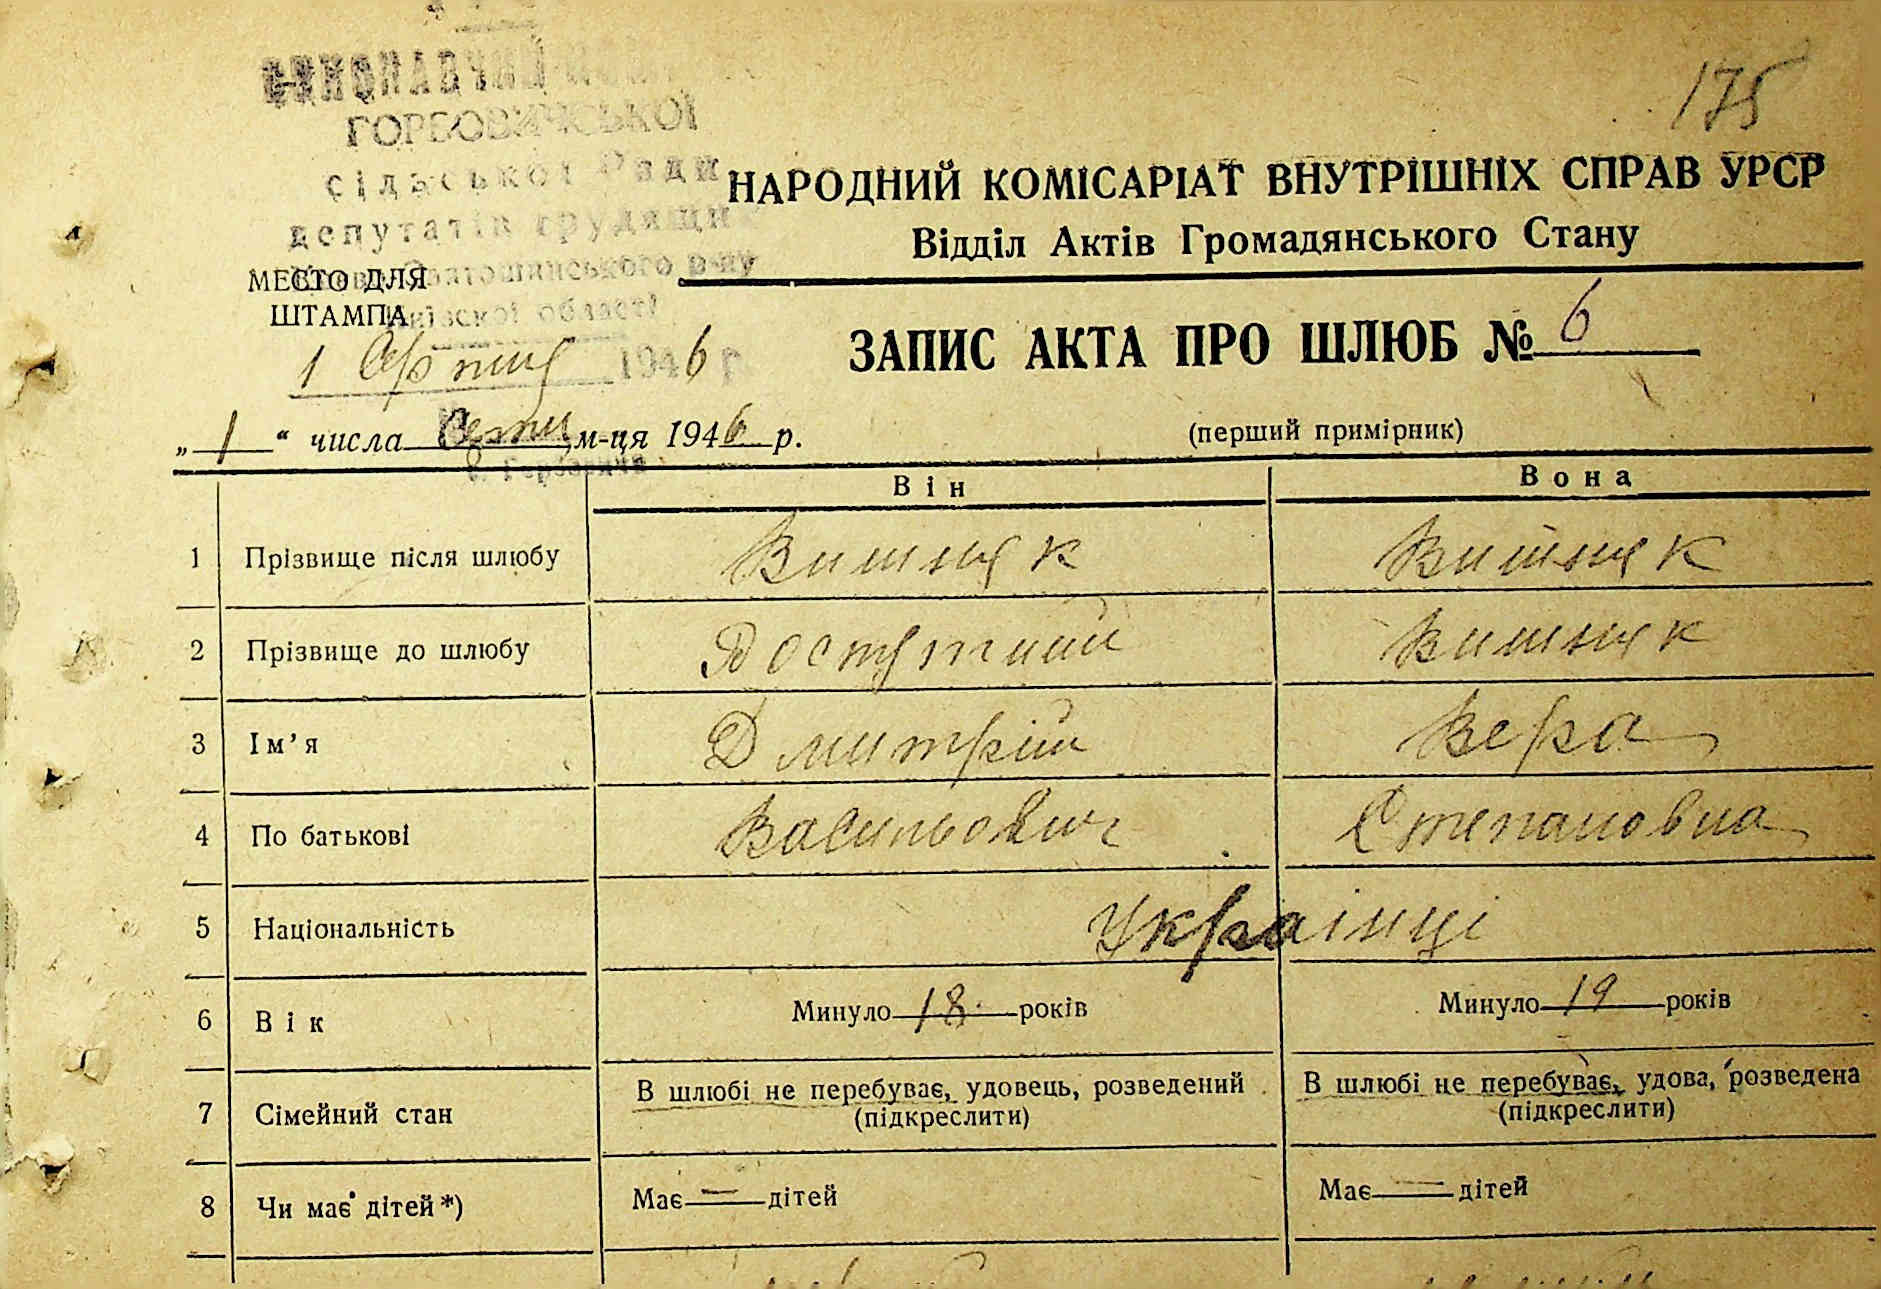 175
ВИКОНАВЧИЙ
ГОРБОВИЧСЬКОЇ
сільської Ради
депутатів трудящих
Києво-Святошинського р-ну
Київської області
МЕСТО ДЛЯ
ШТАМПА
1 Серпня 1946 р
НАРОДНИЙ КОМІСАРІАТ ВНУТРІШНІХ СПРАВ УРСР
Відділ Актів Громадянського Стану
ЗАПИС АКТА ПРО ШЛЮБ № 6
„1“ числа Серпн м-ця 1946 р.
(перший примірник)
Він Вона
1 Прізвище після шлюбу Вишняк Вишняк
2 Прізвище до шлюбу Вишняк
3 Ім’я Дмитрій Вера
4 По батькові Васильович Степановна
5 Національність Українці
6 Вік Минуло 18 років Минуло 19 років
7 Сімейний стан В шлюбі не перебуває, удовець, розведений В шлюбі не перебуває, удова, розведена
(підкреслити) (підкреслити)
8 Чи має дітей*) Має — дітей Має — дітей